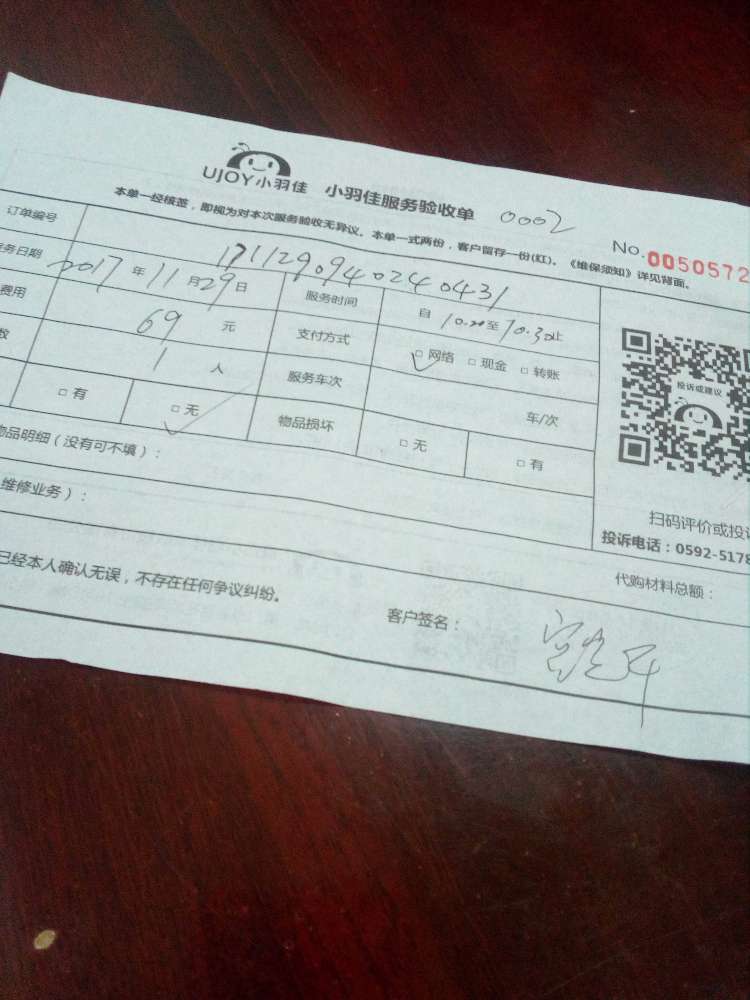 UJOY小羽佳 小羽佳服务验收单 0002
No.0050572
本单一经核签，即视为对本次服务验收无异议。本单一式两份，客户留存一份(红)。《维保须知》详见背面。
订单编号 1711290940240431
务日期 2017年11月29日 服务时间 自10.20至10.30止
费用 69元 支付方式 □网络 □现金 □转账
数 1人 服务车次 车/次
□有 □无 物品损坏 □无 □有
投诉或建议
物品明细（没有可不填）：
扫码评价或投诉
维修业务）：
投诉电话：0592-5178
代购材料总额：
已经本人确认无误，不存在任何争议纠纷。
客户签名：